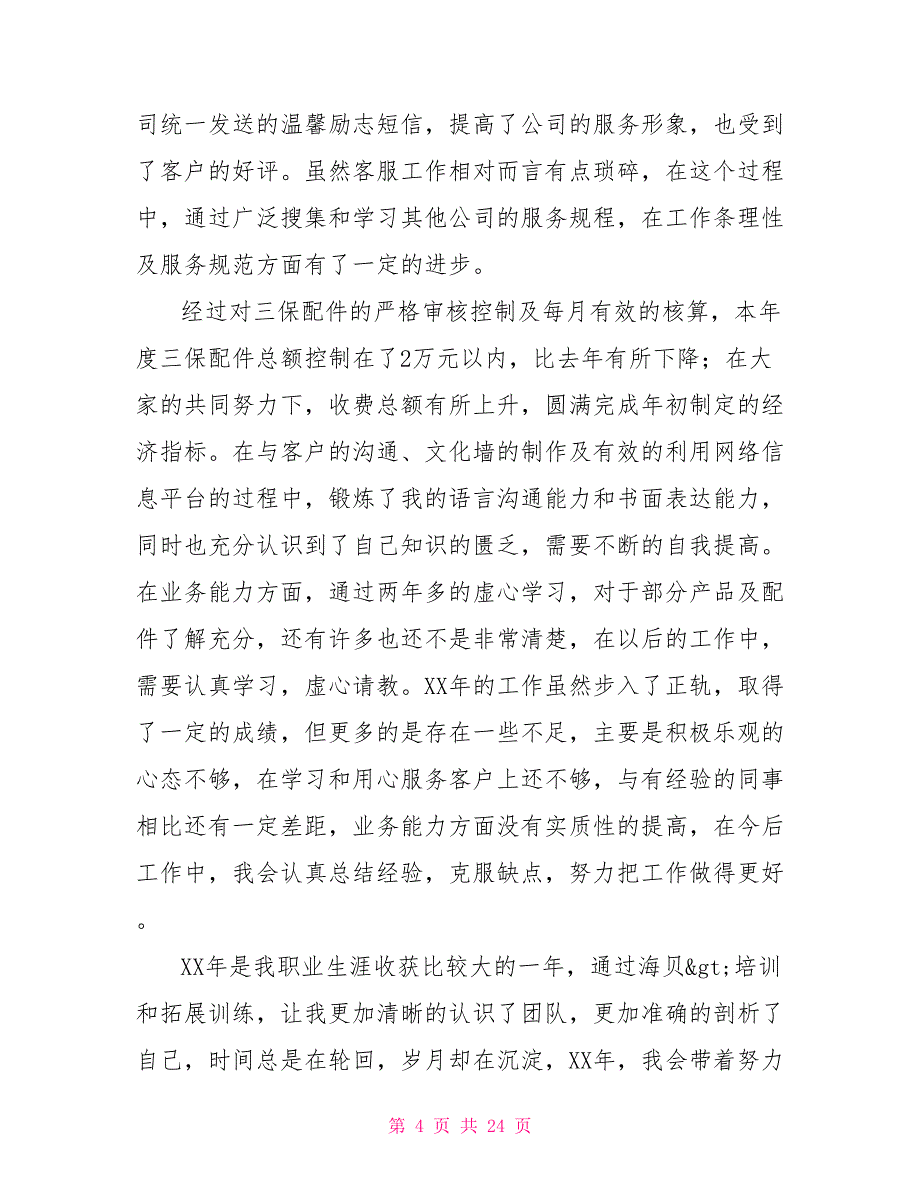 司统一发送的温馨励志短信，提高了公司的服务形象，也受到
了客户的好评。虽然客服工作相对而言有点琐碎，在这个过程
中，通过广泛搜集和学习其他公司的服务规程，在工作条理性
及服务规范方面有了一定的进步。
经过对三保配件的严格审核控制及每月有效的核算，本年
度三保配件总额控制在了2万元以内，比去年有所下降；在大
家的共同努力下，收费总额有所上升，圆满完成年初制定的经
济指标。在与客户的沟通、文化墙的制作及有效的利用网络信
息平台的过程中，锻炼了我的语言沟通能力和书面表达能力，
同时也充分认识到了自己知识的匮乏，需要不断的自我提高。
在业务能力方面，通过两年多的虚心学习，对于部分产品及配
件了解充分，还有许多也还不是非常清楚，在以后的工作中，
需要认真学习，虚心请教。XX年的工作虽然步入了正轨，取得
了一定的成绩，但更多的是存在一些不足，主要是积极乐观的
心态不够，在学习和用心服务客户上还不够，与有经验的同事
相比还有一定差距，业务能力方面没有实质性的提高，在今后
工作中，我会认真总结经验，克服缺点，努力把工作做得更好
。
XX年是我职业生涯收获比较大的一年，通过海贝&gt;培训
和拓展训练，让我更加清晰的认识了团队，更加准确的剖析了
自己，时间总是在轮回，岁月却在沉淀，XX年，我会带着努力
第 4 页 共 24 页